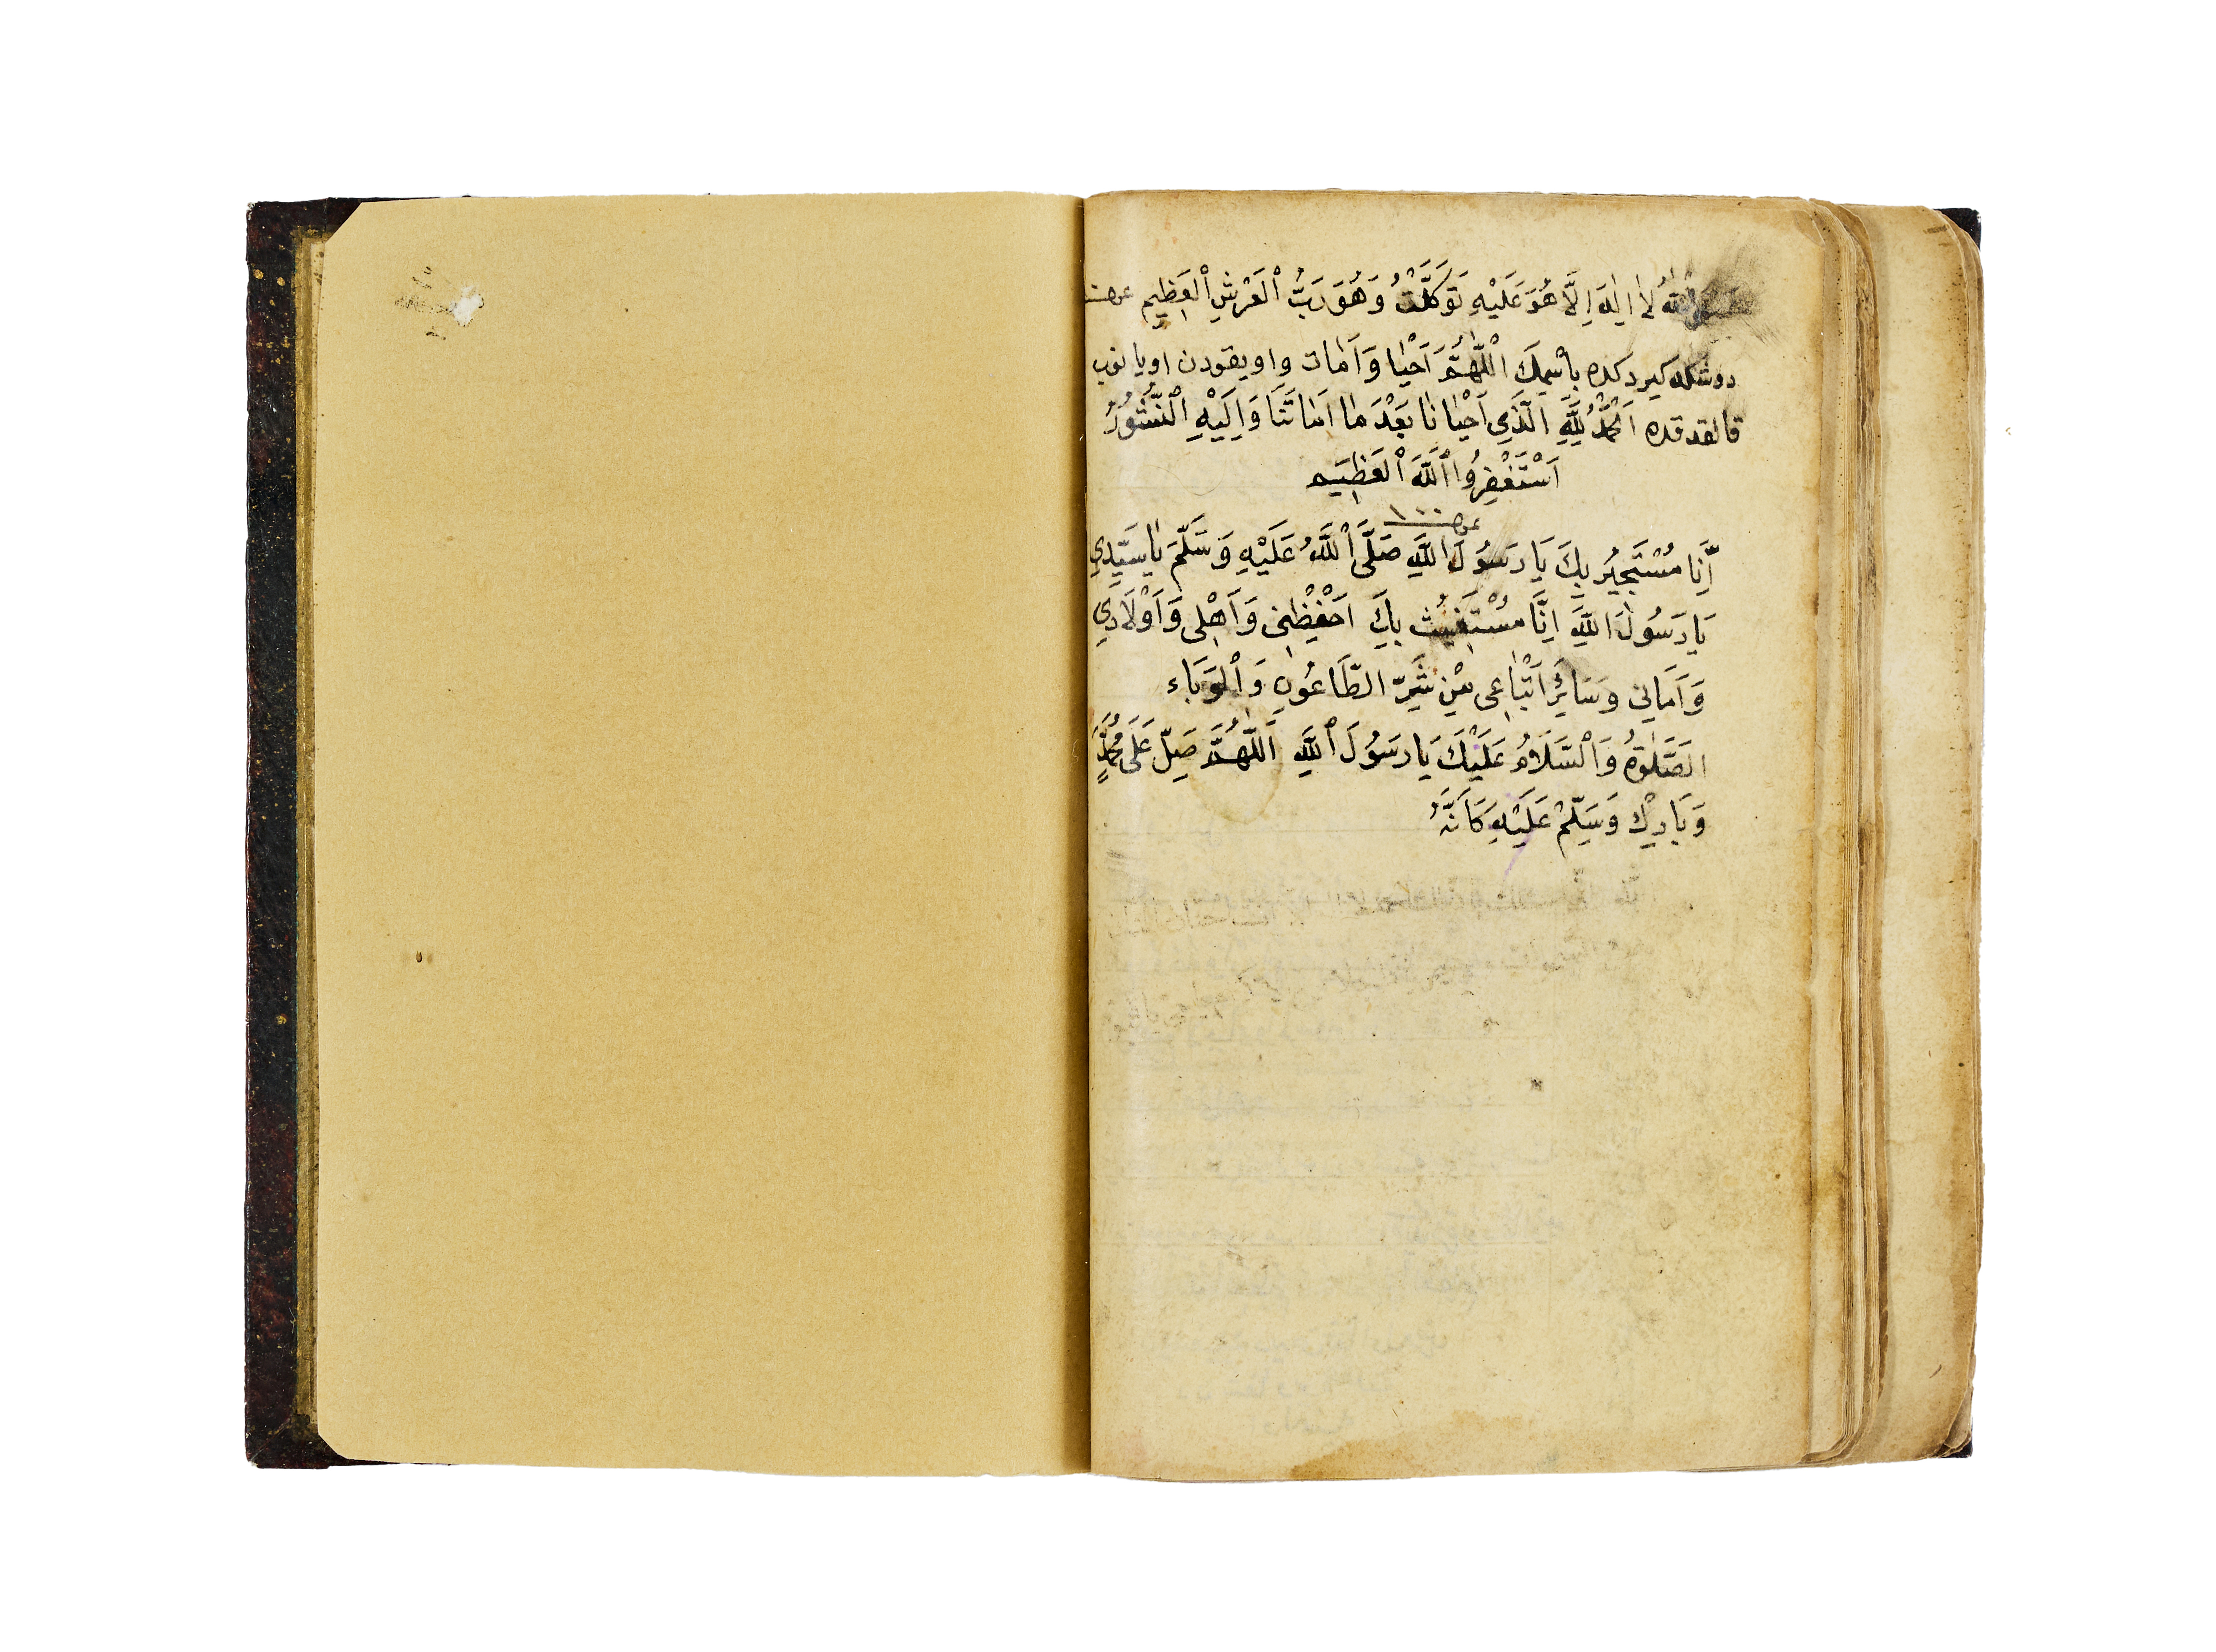 حَسْبِيَ اللّٰهُ لاٰ اِلٰهَ اِلَّا هُوَ عَلَيْهِ تَوَكَّلْتُ وَهُوَ رَبُّ الْعَرْشِ الْعَظِيمِ
دوشكه كيردكده بِاسْمِكَ اللّٰهُمَّ اَحْيٰا وَاَمٰات واويقودن اويانوب
قالقدقده اَلْحَمْدُ لِلّٰهِ الَّذِي اَحْيٰانٰا بَعْدَ مٰا اَمٰاتَنَا وَاِلَيْهِ النُّشُورُ
اَسْتَغْفِرُوا اللّٰهَ الْعَظِيمِ
١٠٠
اَنَا مُسْتَجِيرٌ بِكَ يَا رَسُولَ اللّٰهِ صَلَّى اللّٰهُ عَلَيْهِ وَسَلَّمَ يٰا سَيِّدِي
يَا رَسُولَ اللّٰهِ اِنَّا مُسْتَغِيثٌ بِكَ اَحْفِظْنِي وَاَهْلِي وَاَوْلَادِي
وَاَمَانِي وَسَائِرَ اَتْبَاعِي مِنْ شَرِّ الطَّاعُونِ وَالْوَبَاء
الصَّلٰوةُ وَالسَّلَامُ عَلَيْكَ يَا رَسُولَ اللّٰهِ اَللّٰهُمَّ صَلِّ عَلَى مُحَمَّدٍ
وَبَارِكْ وَسَلِّمْ عَلَيْهِ كَاَنَّهُ